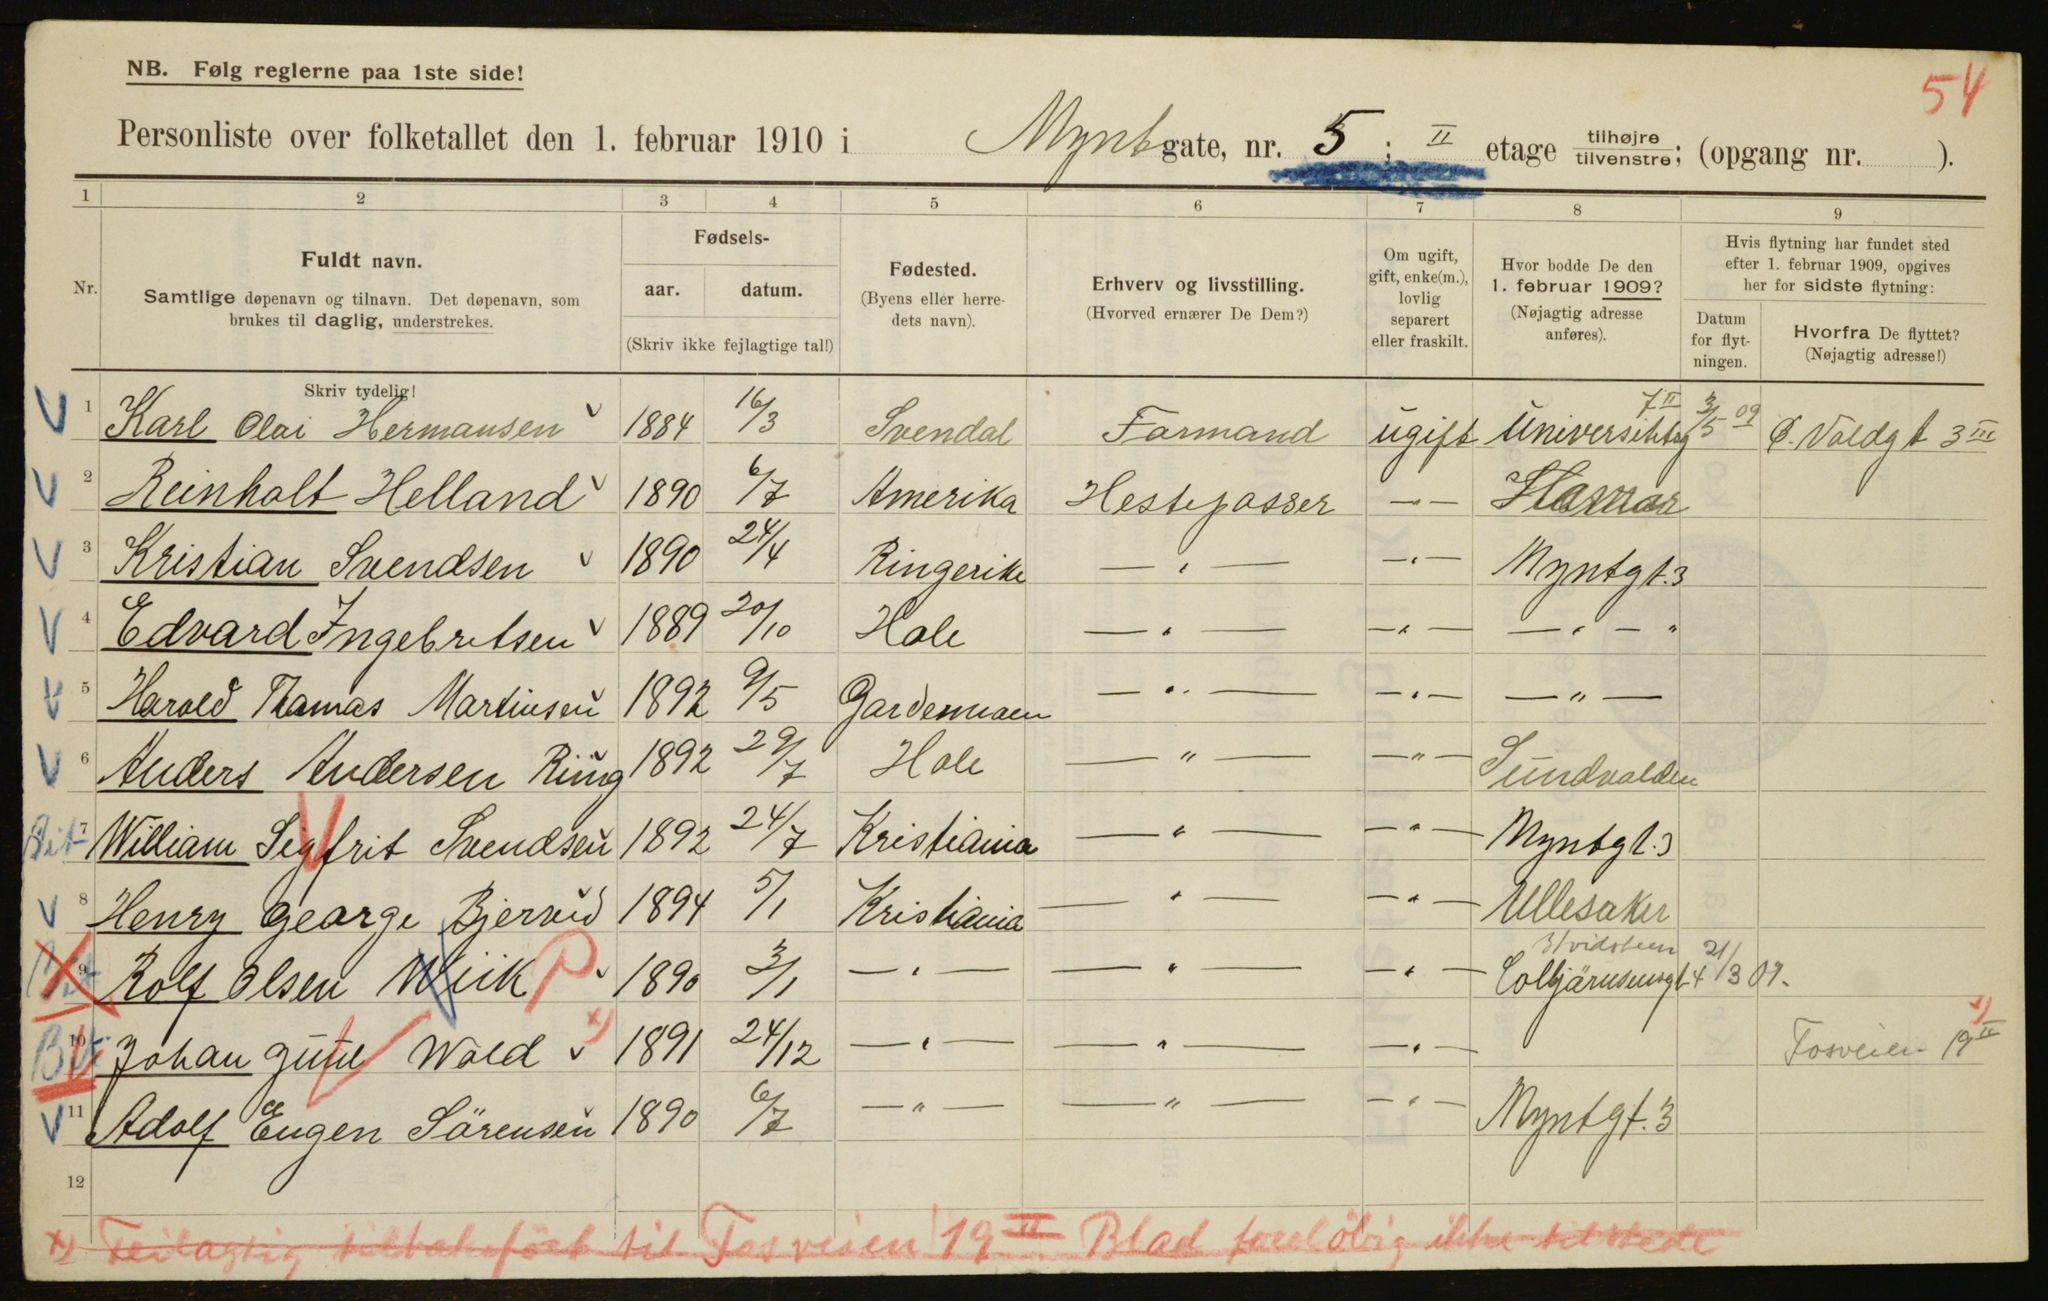 NB. Følg reglerne paa 1ste side!
54
Personliste over folketallet den 1. februar 1910 i Myntgate, nr. 5; II etage tilhøjre tilvenstre; (opgang nr. ).
1 2 3 4 5 6 7 8 9
Nr.
Fuldt navn.
Samtlige døpenavn og tilnavn. Det døpenavn, som
brukes til daglig, understrekes.
Fødsels-
aar. datum.
(Skriv ikke fejlagtige tal!)
Fødested.
(Byens eller herre-
dets navn).
Erhverv og livsstilling.
(Hvorved ernærer De Dem?)
Om ugift,
gift, enke(m.),
lovlig
separert
eller fraskilt.
Hvor bodde De den
1. februar 1909?
(Nøjagtig adresse
anføres).
Hvis flytning har fundet sted
efter 1. februar 1909, opgives
her for sidste flytning:
Datum
for flyt-
ningen.
Hvorfra De flyttet?
(Nøjagtig adresse!)
Skriv tydelig!
1 Karl Olai Hermansen 1884 16/3 Svendal Formand ugift Universitetsg 7 II 3/5 09 Ø. Voldgt 3 III
2 Reinholt Helland 1890 6/7 Amerika Hestepasser —„— Hamar
3 Kristian Svendsen 1890 24/4 Ringerike —„— —„— Myntgt. 3
4 Edvard Ingebretsen 1889 20/10 Hole —„— —„— —„—„
5 Harold Thomas Martinsen 1892 9/5 Gardermoen —„— —„— —„—
6 Anders Andersen Ring 1892 29/7 Hole —„— —„— Sundvolden
Bit 7 William Sigfrit Svendsen 1892 24/7 Kristiania —„— —„— Myntgt. 3
8 Henry George Bjerved 1894 5/1 Kristiania —„— —„— Ullesaker
9 Rolf Olsen Wiik P 1890 3/1 —„— —„— —„— Colbjörnsensgt 4 21/3 09.
10 Johan Wold x) 1891 24/12 —„— —„— —„— x) Fosveien 19 II
11 Adolf Eugen Sörensen 1890 6/7 —„— —„— —„— Myntgt. 3
12
x) Feilagtig tilbakeført til Fosveien 19 II Blad foreløbig ikke tilstede